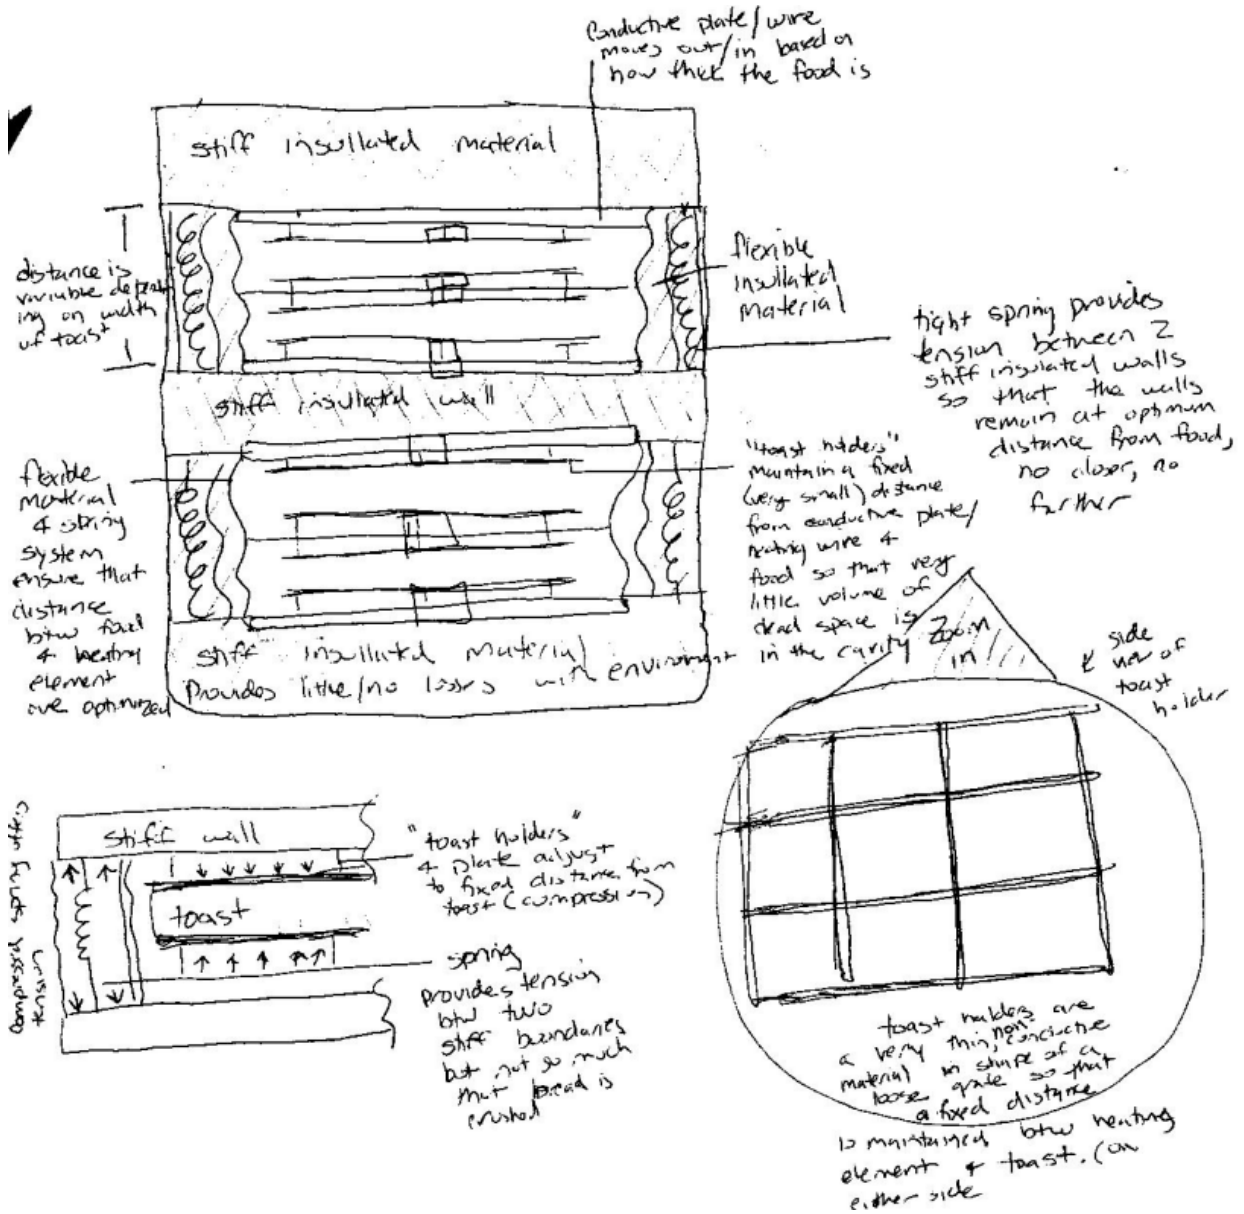 Conductive plate/wire
moves out/in based on
how thick the food is
stiff insullated material
distance is
variable depend
ing on width
of toast
flexible
insullated
material
tight spring provides
tension between 2
stiff insulated walls
so that the walls
remain at optimum
distance from food,
no closer, no
further
stiff insullated wall
flexible
material
& spring
system
ensure that
distance
btw food
& heating
element
are optimized
"toast holders"
maintain a fixed
(very small) distance
from conductive plate/
heating wire &
food so that very
little volume of
dead space is
in the cavity
stiff insullated material
Provides little/no losses with enviroment
Zoom
in
side
view of
toast
holder
stiff wall
toast
"toast holders"
& plate adjust
to fixed distance from
toast (compression)
spring
provides tension
btw two
stiff boundaries
but not so much
that bread is
crushed
compressed spring
toast holders are
a very thin, non-conductive
material in shape of a
loose grate so that
a fixed distance
is maintained btw heating
element & toast. (on
either side